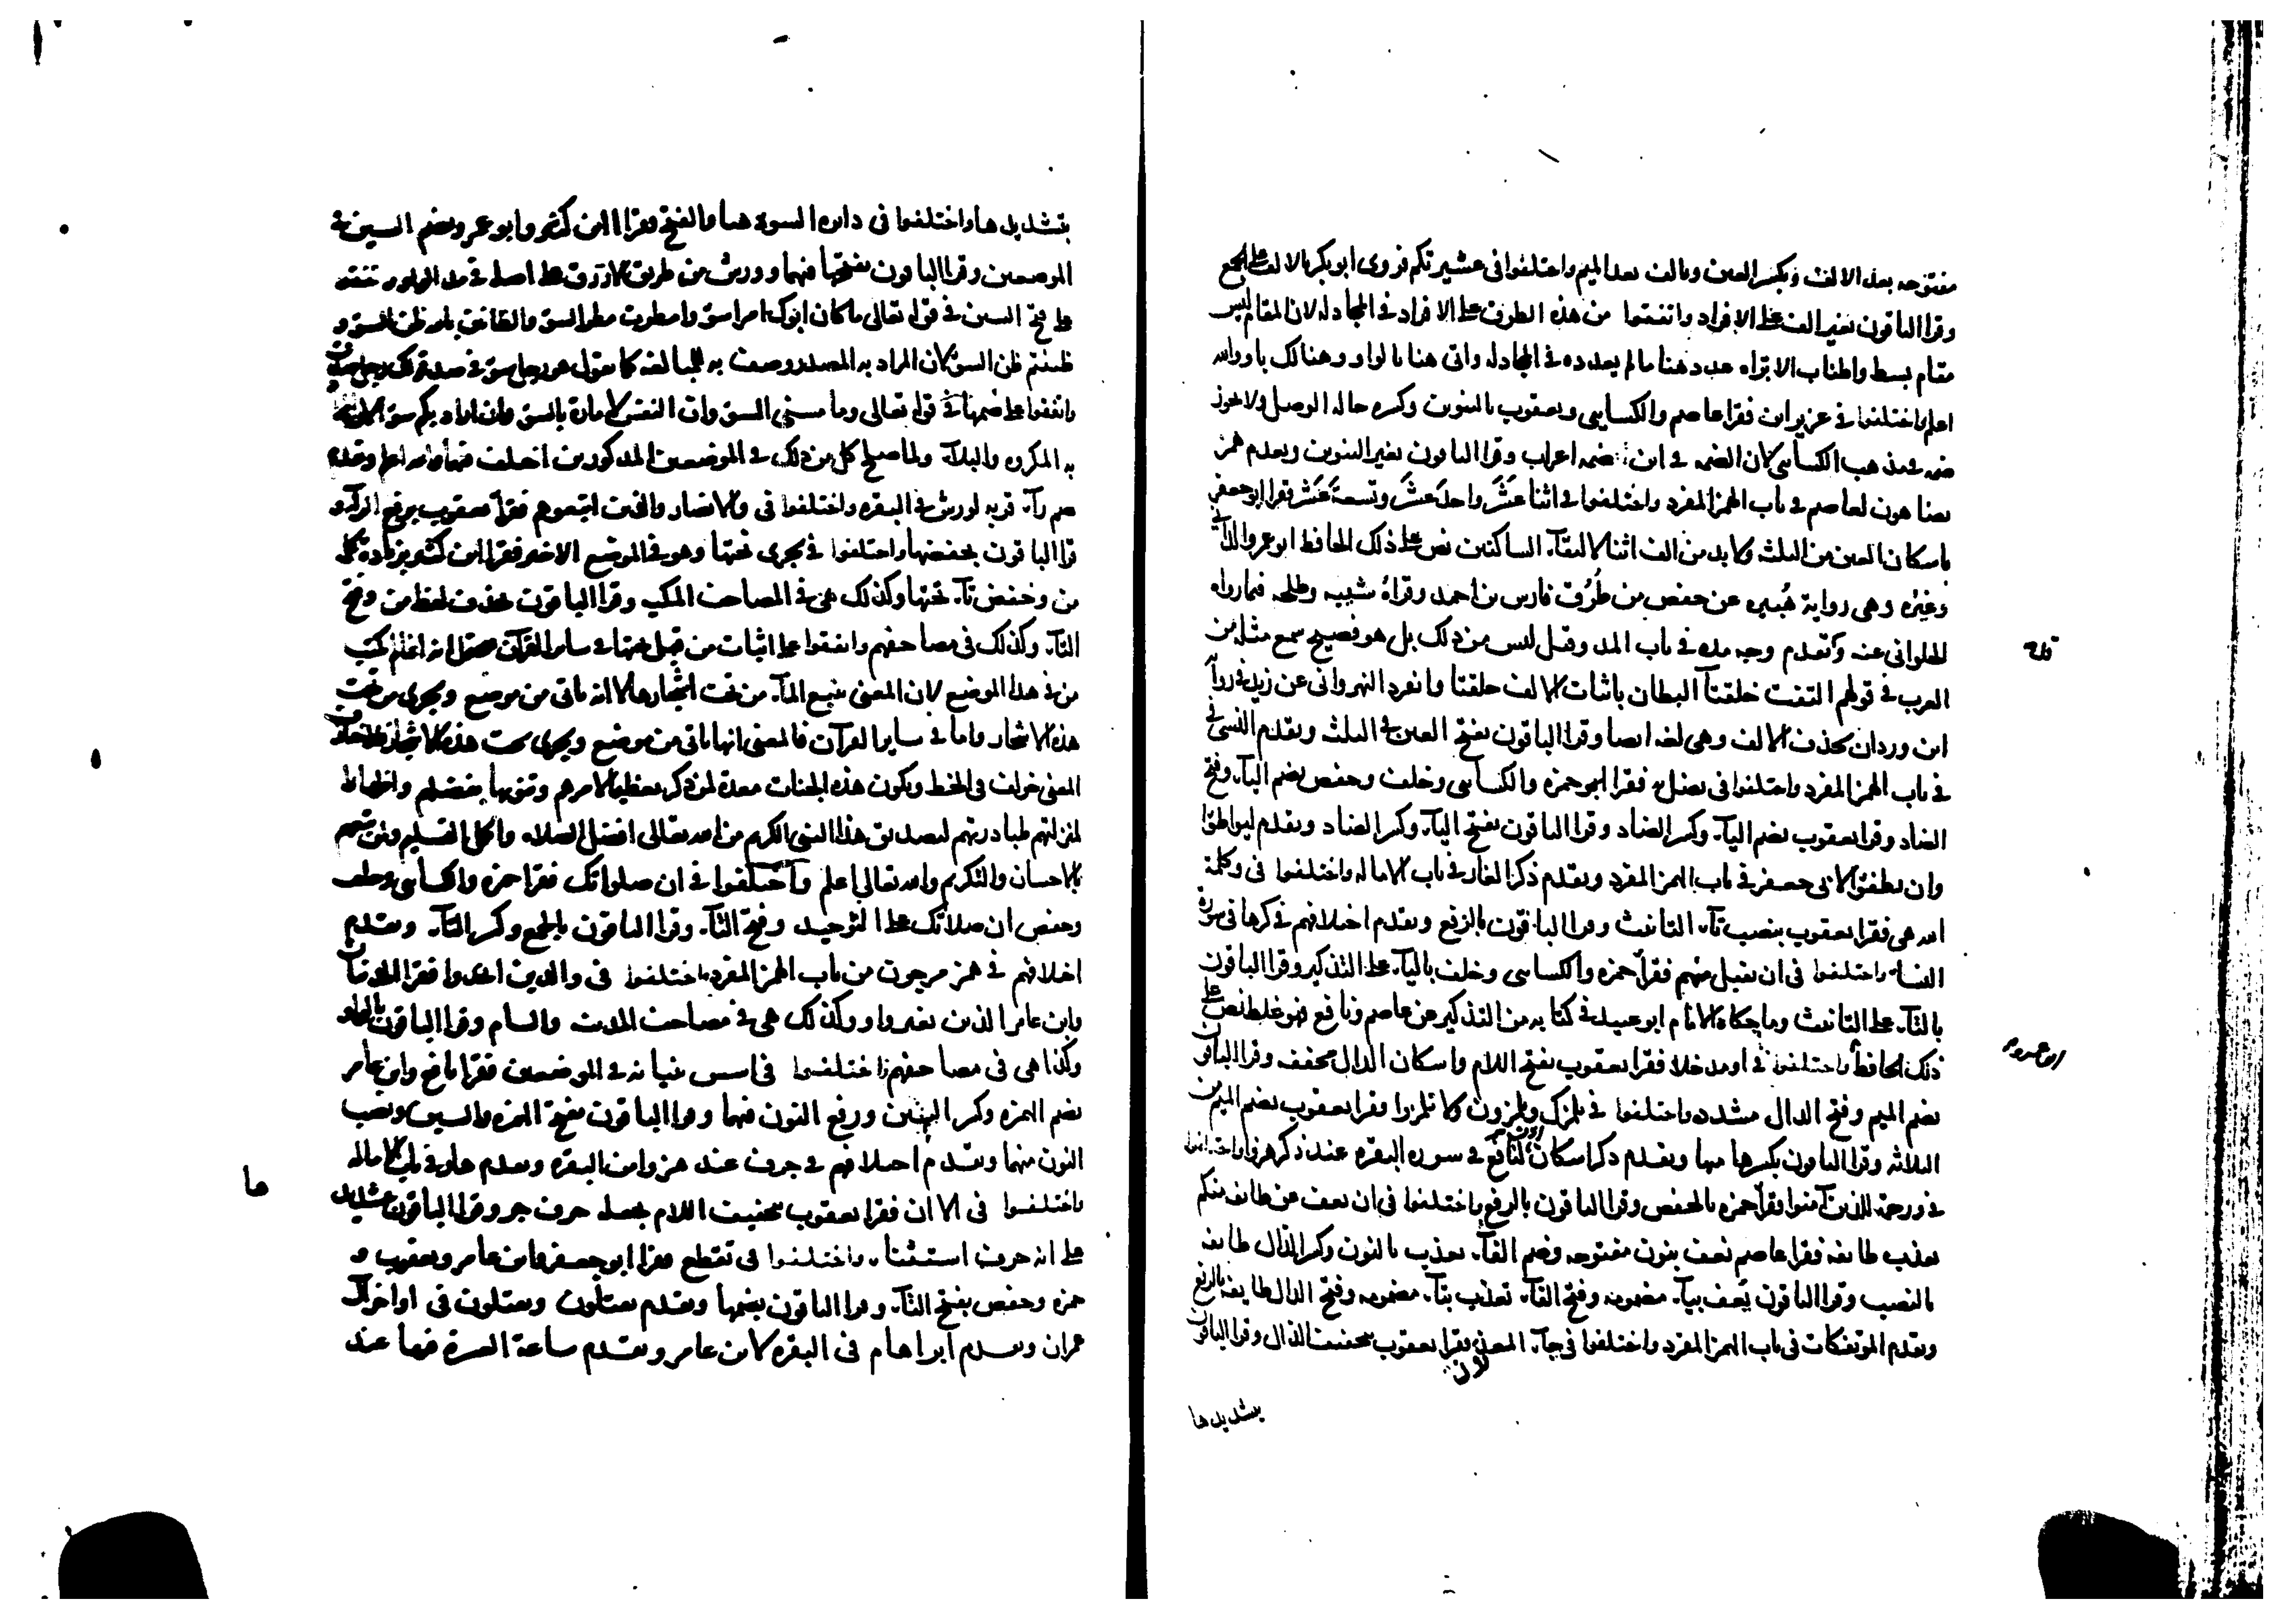 مفتوحه بعد الالف وبكسر العين وبالف بعد الميم واختلفوا فى عشيرتكم فروى ابو بكر بالالف على الجمع
وقرا الباقون بغير الف على الافراد واتفقوا من هذه الطرق على الافراد فى المجادله لان المقام ليس
مقام بسط واطناب الا تراه عدد هنا ما لم يعدده فى المجادله واتى هنا بالواو وهنالك باو والله
اعلم واختلفوا فى عزير ابن فقرا عاصم والكساىى ويعقوب بالتنوين وكسره حاله الوصل ولا يجوز
ضمه فى مذهب الكساىى لان الضمه فى ابن ضمه اعراب وقرا الباقون بغير التنوين وتقدم همز
يضاهون لعاصم فى باب الهمز المفرد واختلفوا فى اثنا عشر واحد عشر وتسعة عشر فقرا ابو جعفر
باسكان العين من الثلث ولا بد من الف اثنا لالتقآء الساكنين نص على ذلك الحافظ ابو عمرو الدانى
وغيره وهى رواية هبيره عن حفص من طرق فارس بن احمد وقراه شيبه وطلحه فيما رواه
الحلوانى عنه وتقدم وجه مده فى باب المد وقيل ليس من ذلك بل هو فصيح سمع مثله من
العرب فى قولهم التقت حلقتآ البطان باثبات الالف حلقتا وانفرد النهروانى عن زيد فى روآية
ابن وردان بحذف الالف وهى لغه ايضا وقرا الباقون بفتح العين فى الثلث وتقدم النسى فى
فى باب الهمز المفرد واختلفوا فى يضل به فقرا حمزه والكساىى وخلف وحفص بضم اليآء وفتح
الضاد وقرا يعقوب بضم اليآء وكسر الضاد وقرا الباقون بفتح اليآء وكسر الضاد وتقدم ليواطوا
وان يطفوا لابى جعفر فى باب الهمز المفرد وتقدم ذكر الغار فى باب الاماله واختلفوا فى وكلمة
الله هى فقرا يعقوب بنصب تآء التانيث وقرا الباقون بالرفع وتقدم اختلافهم فى كرها فى سورة
النسا واختلفوا فى ان تقبل منهم فقرا حمزه والكساىى وخلف باليآء على التذكير وقرا الباقون
بالتآء على التانيث وما حكاه الامام ابو عبيد فى كتابه من التذكير عن عاصم ونافع فهو غلط نص على
ذلك الحافظ واختلفوا فى او مدخلا فقرا يعقوب بفتح الميم واسكان الدال مخففه وقرا الباقون
بضم الميم وفتح الدال مشدده واختلفوا فى يلمزك ويلمزون ولا تلمزوا فقرا يعقوب بضم الميم من
الثلاثه وقرا الباقون بكسرها منها وتقدم ذكر اسكان اذن لنافع فى سورة البقره عند ذكر هزوا واختلفوا
فى ورحمة للذين آمنوا فقرا حمزه بالخفض وقرا الباقون بالرفع واختلفوا فى ان نعف عن طائفه منكم
نعذب طائفه فقرا عاصم نعف بنون مفتوحه وضم الفآء نعذب بالنون وكسر الذال طائفه
بالنصب وقرا الباقون يعف بيآء مضمومه وفتح الفآء تعذب بتآء مضمومه وفتح الذال طايفه بالرفع
وتقدم الموتفكات فى باب الهمز المفرد واختلفوا فى جآء المعذرون فقرا يعقوب بتخفيف الذال وقرا الباقون
بتشديدها
بتشديدها واختلفوا فى دايره السوء هنا والفتح فقرا ابن كثير وابو عمرو بضم السين فى
الموضعين وقرا الباقون بفتحها فيهما وورش من طريق الازرق على اصله فى مد الواو واتفقوا
على فتح السين فى قوله تعالى ما كان ابوك امرا سوء وامطرت مطر السوء والظانين بالله ظن السوء و
ظننتم ظن السوء لان المراد به المصدر وصف به للمبالغه كما تقول هو رجل سوء فى ضد قولك رجل صدق
واتفقوا على ضمها فى قوله تعالى وما مسنى السوء وان النفس لامارة بالسوء وان اراد بكم سوا لان المراد
به المكروه والبلآء ولما صلح كل من ذلك فى الموضعين المذكورين اختلف فيهما والله اعلم وتقدم
ضم رآء قربه لورش فى البقره واختلفوا فى والانصار والذين اتبعوهم فقرا يعقوب برفع الرآء و
قرا الباقون بخفضها واختلفوا فى تجرى تحتها وهو فى الموضع الاخير فقرا ابن كثير بزيادة كلمة
من وخفض تآء تحتها وكذلك هى فى المصاحف المكيه وقرا الباقون بحذف لفظ من وفتح
التآء وكذلك فى مصاحفهم واتفقوا على اثبات من قبل تحتها فى ساير القرآن فيحتمل انه انما لم يكتب
من فى هذا الموضع لان المعنى ينبع المآء من تحت اشجارها لا انه ياتى من موضع ويجرى من تحت
هذه الاشجار واما فى ساير القرآن فالمعنى انها تاتى من موضع وتجرى تحت هذه الاشجار فلاختلاف
المعنى خولف فى الخط وتكون هذه الجنات معدة لمن ذكر تعظيما لامرهم وتنويها بفضلهم واظهارا
لمنزلتهم لمبادرتهم لتصديق هذا النبى الكريم من الله تعالى افضل الصلاه واكمل التسليم ولمن تبعهم
بالاحسان والتكريم والله تعالى اعلم واختلفوا فى ان صلواتك فقرا حمزه والكساىى وخلف
وحفص ان صلاتك على التوحيد وفتح التآء وقرا الباقون بالجمع وكسر التآء وتقدم
اختلافهم فى همز مرجون من باب الهمز المفرد واختلفوا فى والذين اتخذوا فقرا المدنيان
وابن عامر الذين بغير واو وكذلك هى فى مصاحف المدينه والشام وقرا الباقون بالواو
وكذا هى فى مصاحفهم واختلفوا فى اسس بنيانه فى الموضعين فقرا نافع وابن عامر
بضم الهمزه وكسر السين ورفع النون فيهما وقرا الباقون بفتح الهمزه والسين ونصب
النون منهما وتقدم اختلافهم فى جرف عند هزوا من البقره وتقدم هار فى باب الاماله
واختلفوا فى الا ان فقرا يعقوب بتخفيف اللام بجعله حرف جر وقرا الباقون بتشديدها
على انه حرف استثناء واختلفوا فى تقطع فقرا ابو جعفر وابن عامر ويعقوب و
حمزه وحفص بفتح التآء وقرا الباقون بضمها وتقدم يقتلون ويقتلون فى اواخر آل
عمران وتقدم ابراهام فى البقره لابن عامر وتقدم ساعة العسرة فيها عند